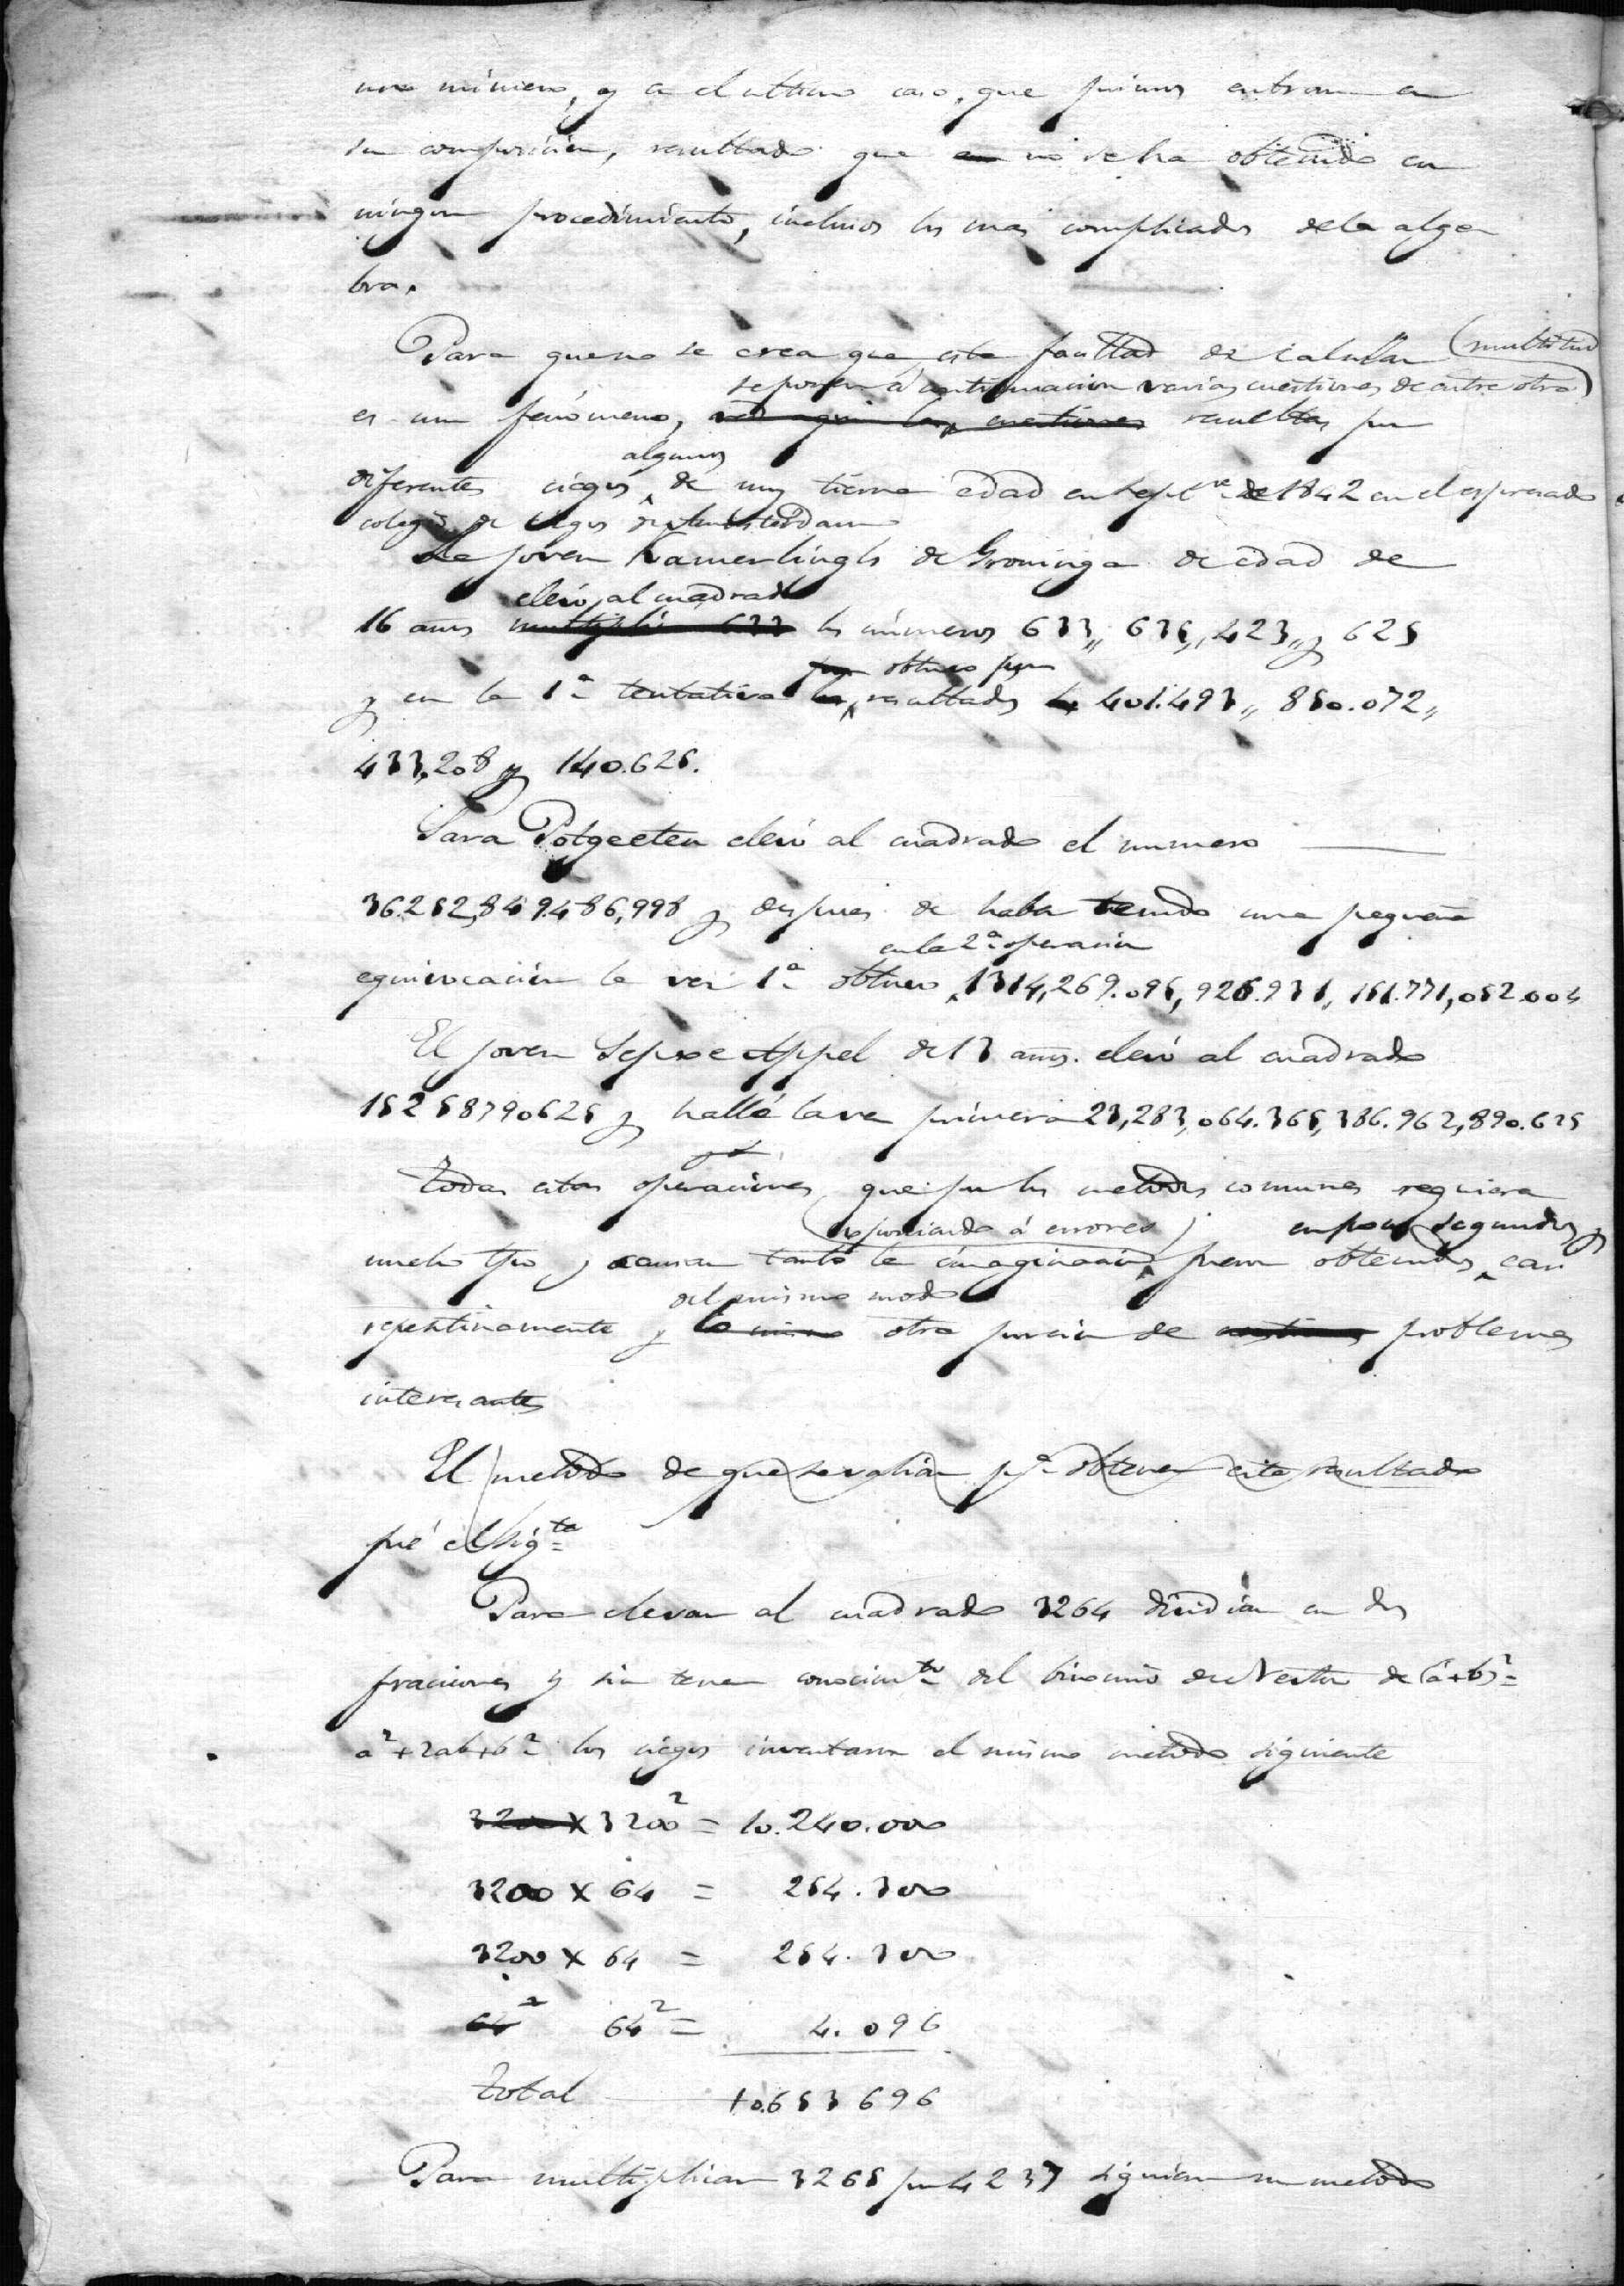 uno número, y en el ultimo caso, que primos entran en
su composicion, resultado que no se ha obtenido en
ningun procedimiento, inclusos los mas complicados dela alge
bra.
Para que no se crea que esta facultad de calcular (multitud
se ponen á continuacion varias cuestiones de entre otra)
es un fenómeno, resueltas por
algunos
diferentes ciegos de muy tierna edad en Sept.re de 1842 en el espresado
colegio de ciegos de Amsterdam
El joven Kamerlingh de Groninga de edad de
elevó al cuadrado
16 años multiplicó 633 los números 633,, 635,, 423,, y 625
obtuvo por
y en la 1ª tentativa resultados 401.493,, 850.072,,
433,208 y 140.625.
Para Potgeeten elevó al cuadrado el numero
36.252,849.486,998 y despues de haber tenido una pequeña
en la 2ª operacion
equivocacion la vez 1ª obtuvo 1314,269.095,926.931,151.771,052.004
El joven Appel de 13 años elevó al cuadrado
152587890625 y halló la vez primera 23,283,064.365,386.962,890.625
Todas estas operaciones, que por los metodos comunes requieren
esponiendo á errores) en pocos segundos y
mucho tpo y cansan tanto la imaginacion fueron obtenidos casi
del mismo modo
repentinamente y lo mismo otra porcion de cuestiones problemas
interesantes
El metodo de que se valian pª obtener este resultado
fué el sigte
Para elevar al cuadrado 3264 dividian en dos
fraciones y sin tener conocimto del binomio de Newton de (a+b)²=
a²+2ab+b² los ciegos inventaron el mismo metodo siguiente
3200 × 3200² = 10.240.000
3200 × 64 = 254.300
3200 × 64 = 254.300
64² 64² = 4.096
Total 10.653696
Para multiplicar 3265 por 4237 siguieron su metodo